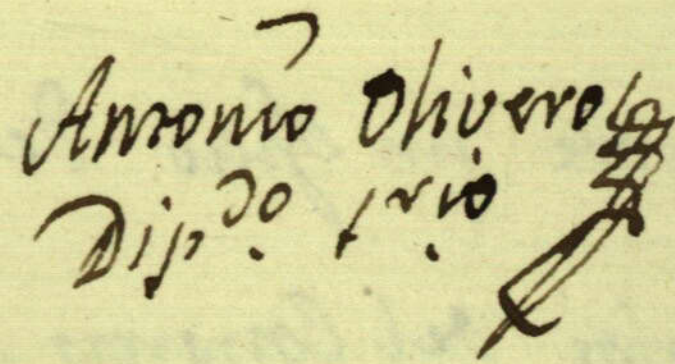 Antonio Oliveros
Dip.do s.rio